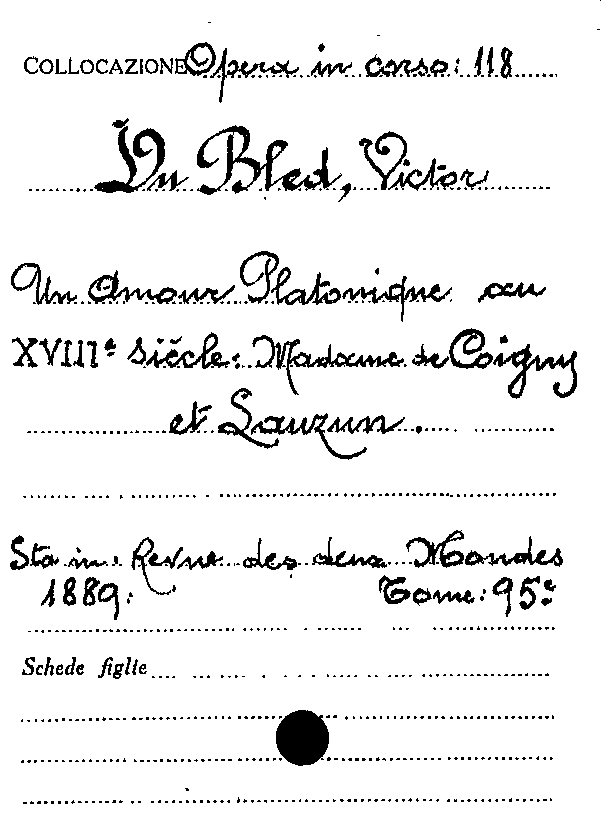 COLLOCAZIONE Opera in corso: 118
Du Bled, Victor
Un Amour Platonique au
XVIIIe Siècle: Madame de Coigny
et Lauzun.
Sta in: Revue des deux Mondes
1889: Tome: 95e
Schede figlie